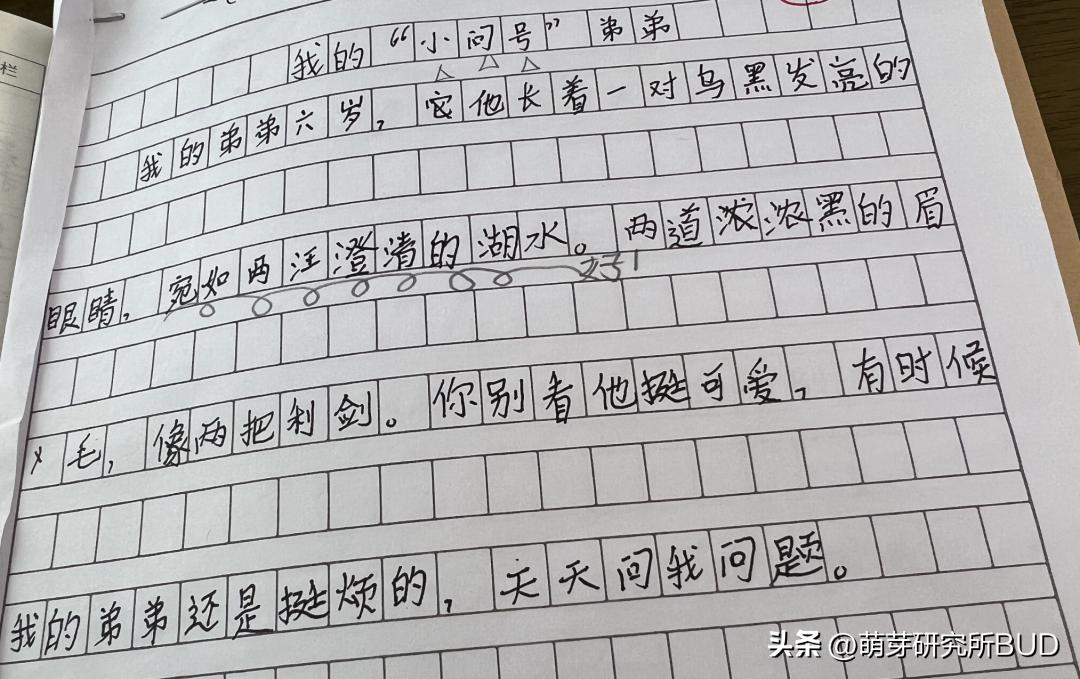 栏
我的“小问号”弟弟
我的弟弟六岁，它他长着一对乌黑发亮的
眼睛，宛如两汪澄清的湖水。两道浓浓黑的眉
好！
毛，像两把利剑。你别看他挺可爱，有时候
我的弟弟还是挺烦的，天天问我问题。
头条 @萌芽研究所BUD